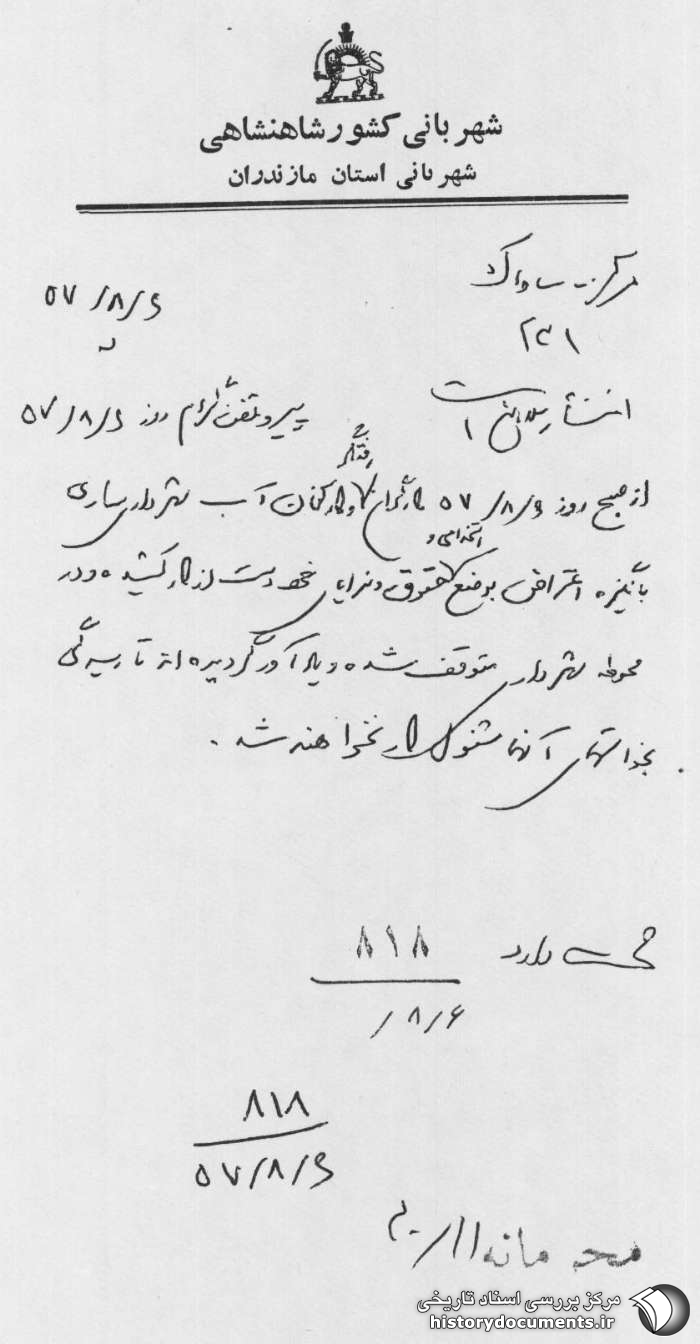 شهربانی کشور شاهنشاهی
شهربانی استان مازندران
مرکز ساواک
۵۷/۸/۶
۲۴۱
پیرو تلفنگرام روز ۵۷/۸/۶
رفتگر
از صبح روز ۵۷/۸/۶ کارگران و کارکنان آب شهرداری ساری
استخدامی و
بانگیزه اعتراض بوضع حقوق و مزایای خود دست از کار کشیده و در
محوطه شهرداری متوقف شده و یادآور گردیده اند تا رسیدگی
بخواستهای آنها مشغول کار نخواهند شد.
۸۱۸
دارد
۸/۶/
۸۱۸
۵۷/۸/۶
محرمانه
مرکز بررسی اسناد تاریخی
historydocuments.ir